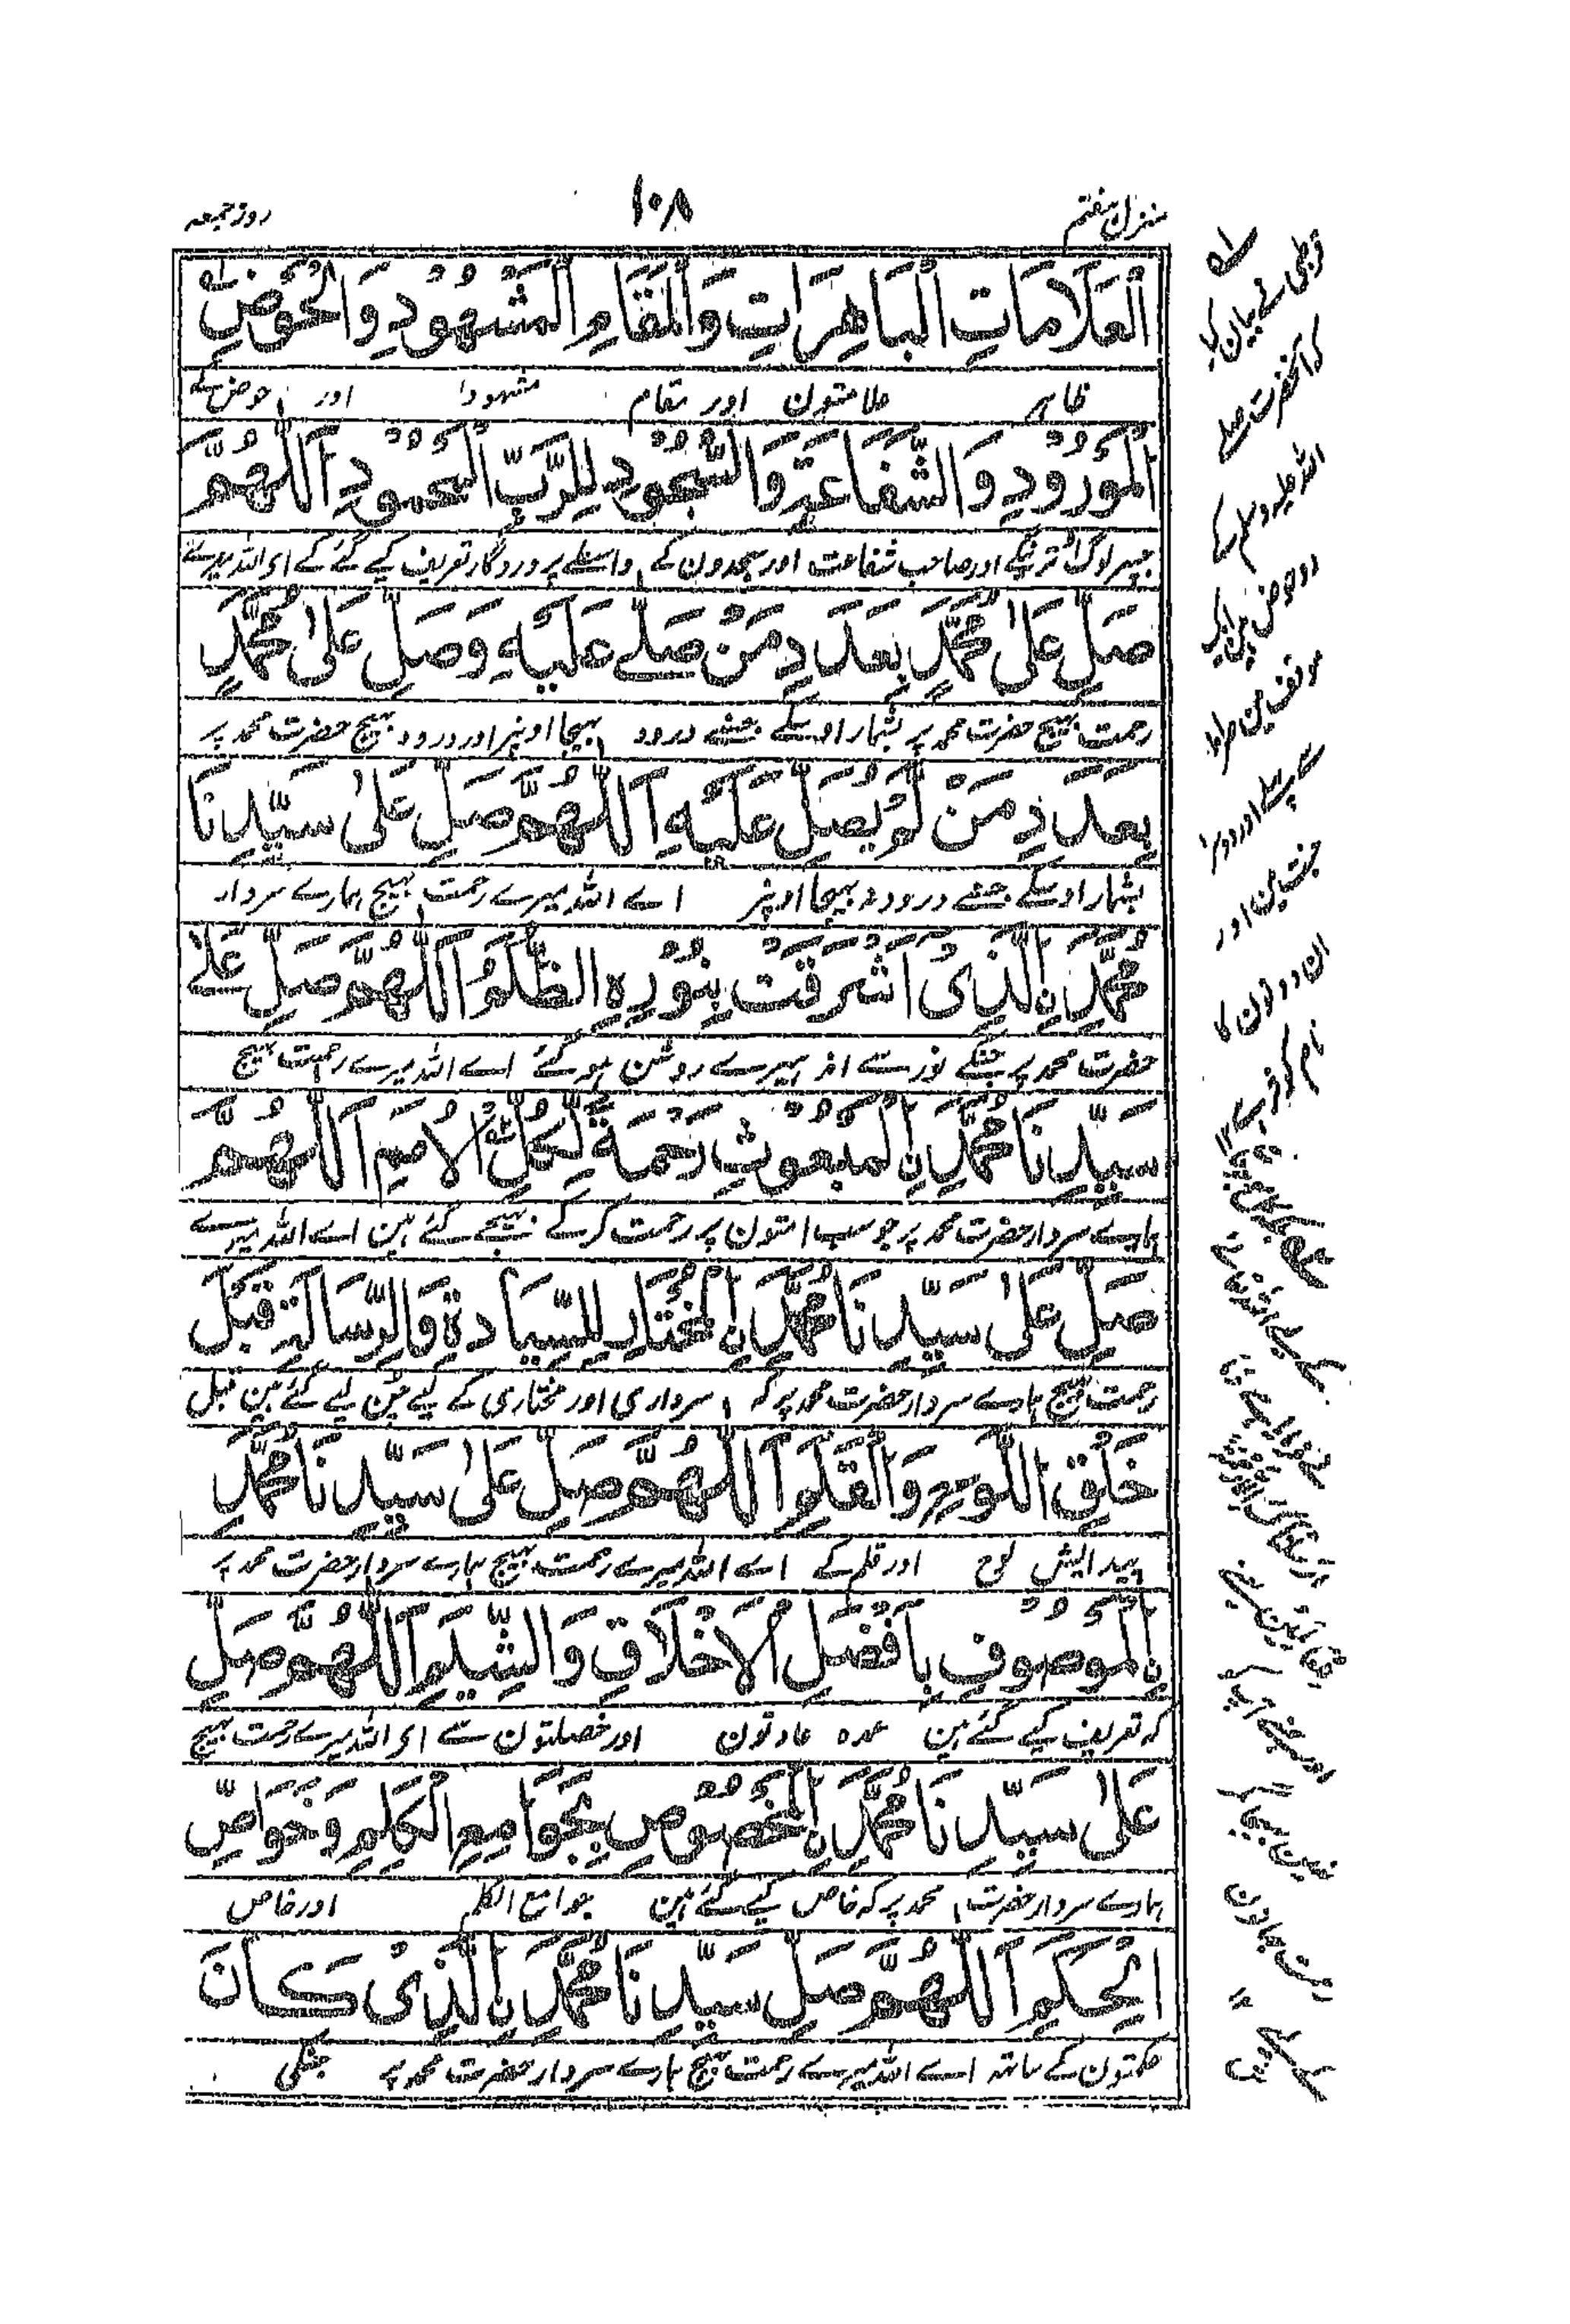 منزل ہفتم
١٠٨
روز جمعہ
الْعَلَامَاتِ الْبَاهِرَاتِ وَالْمَقَامِ الْمَشْهُوْدِ وَالْحَوْضِ
ظاہر علامتون اور مقام مشہود اور حوض کے
الْمَوْرُوْدِ وَالشَّفَاعَةِ وَالسُّجُوْدِ لِلرَّبِّ الْمَحْمُوْدِ اَللّٰهُمَّ
جسپر لوگ اُترینگے اور صاحب شفاعت اور سجدون کے واسطے پروردگار تعریف کیے گئے کے اے اللہ میرے
صَلِّ عَلٰى مُحَمَّدٍ بِعَدَدِ مَنْ صَلّٰے عَلَيْهِ وَصَلِّ عَلٰى مُحَمَّدٍ
رحمت بھیج حضرت محمد پر بشمار اوسکے جسنے درود بھیجا اونپر اور درود بھیج حضرت محمد پر
بِعَدَدِ مَنْ لَّمْ يُصَلِّ عَلَيْهِ اَللّٰهُمَّ صَلِّ عَلٰى سَيِّدِنَا
بشمار اوسکے جسنے درود نہ بھیجا اونپر اے اللہ میرے رحمت بھیج ہمارے سردار
مُحَمَّدِ نِ الَّذِىْ اَشْرَقَتْ بِنُوْرِهِ الظُّلَمُ اَللّٰهُمَّ صَلِّ عَلٰے
حضرت محمد پر جنکے نور سے اندہیرے روشن ہوگئے اے اللہ میرے رحمت بھیج
سَيِّدِنَا مُحَمَّدِ نِ الْمَبْعُوْثِ رَحْمَةً لِّكُلِّ الْاُمَمِ اَللّٰهُمَّ
ہمارے سردار حضرت محمد پر جو سب امتون پر رحمت کرکے بھیجے گئے ہین اے اللہ میرے
صَلِّ عَلٰى سَيِّدِنَا مُحَمَّدِ نِ الْمُخْتَارِ لِلسِّيَادَةِ وَالرِّسَالَةِ قَبْلَ
رحمت بھیج ہمارے سردار حضرت محمد پر کہ سرداری اور مختاری کے لیے چُن لیے گئے ہین قبل
خَلْقِ اللَّوْحِ وَالْقَلَمِ اَللّٰهُمَّ صَلِّ عَلٰى سَيِّدِنَا مُحَمَّدِ
پیدایش لوح اور قلم کے اے اللہ میرے رحمت بھیج ہمارے سردار حضرت محمد پر
نِ الْمَوْصُوْفِ بِاَفْضَلِ الْاَخْلَاقِ وَالشِّيَمِ اَللّٰهُمَّ صَلِّ
کہ تعریف کیے گئے ہین عمدہ عادتون اور خصلتون سے اے اللہ میرے رحمت بھیج
عَلٰى سَيِّدِنَا مُحَمَّدِ نِ الْمَخْصُوْصِ بِجَوَامِعِ الْكَلِمِ وَخَوَاصِّ
ہمارے سردار حضرت محمد پر کہ خاص کیے گئے ہین جوامع الکلم اور خاص
الْحِكَمِ اَللّٰهُمَّ صَلِّ سَيِّدِنَا مُحَمَّدِ نِ الَّذِىْ كَانَ
حکمتون کے ساتھ اے اللہ میرے رحمت بھیج ہمارے سردار حضرت محمد پر جنکی
قرطبی نے بیان کیا
کہ آنحضرت صلے
اللہ علیہ وسلم کے
دو حوض ہین ایک
موقف مین صراط
سے پہلے اور دوسرا
جنت مین اور
ان دونون کا
نام کوثر ہے ١٢